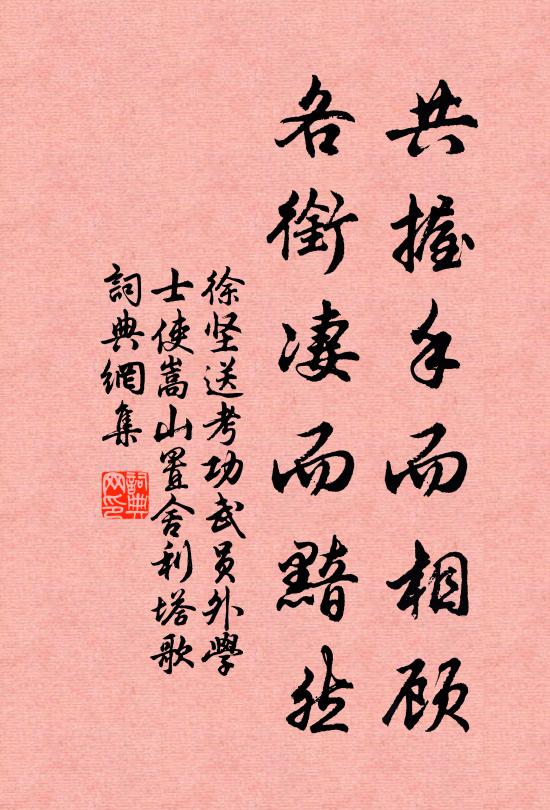 共握手而相顾
各衔凄而黯然
徐坚送考功武员外學
士使嵩山置舍利塔歌
詞典網集
詞典
网印